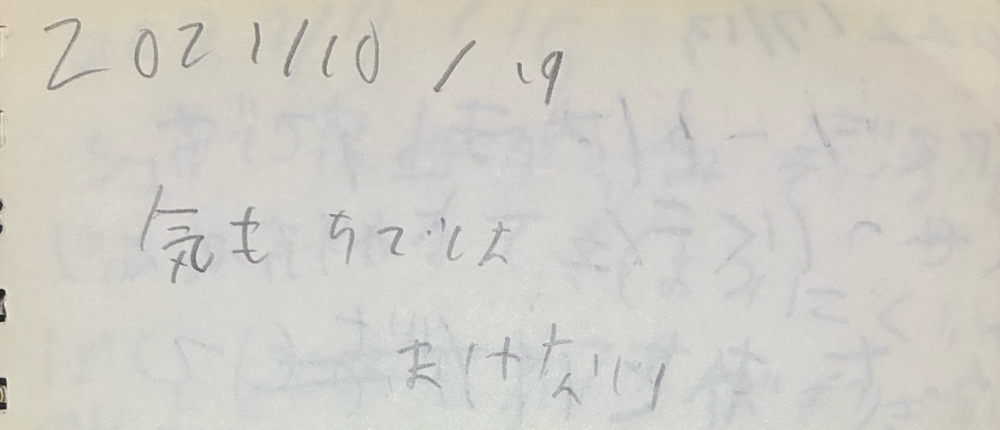 2021/10/19
気もちでは
まけない